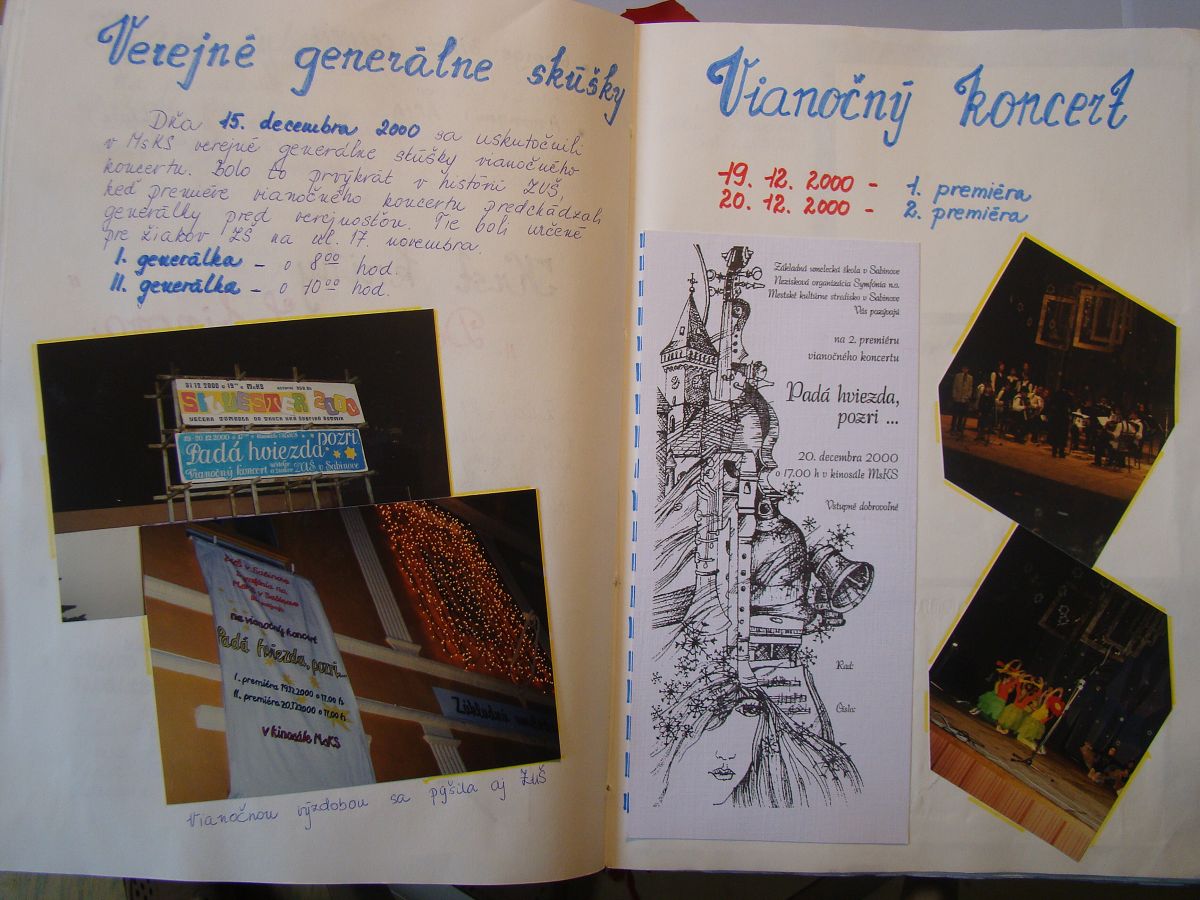 Verejné generálne skúšky
Dňa 15. decembra 2000 sa uskutočnili
v MsKS verejné generálne skúšky vianočného
koncertu. Bolo to prvýkrát v histórii ZUŠ,
keď premiére vianočného koncertu predchádzali
generálky pred verejnosťou. Tie boli určené
pre žiakov ZŠ na ul. 17. novembra.
I. generálka - o 8⁰⁰ hod.
II. generálka - o 10⁰⁰ hod.
31.12.2000 o 19⁰⁰ v MsKS
SILVESTER 2000
19.-20.12.2000 o 17⁰⁰ v kinosále MsKS
Padá hviezda pozri
Vianočný koncert učiteľov a žiakov ZUŠ v Sabinove
ZUŠ v Sabinove
Symfónia n.o.
MsKS v Sabinove
na vianočný koncert
Padá hviezda, pozri...
I. premiéra 19.12.2000 o 17,00 h
II. premiéra 20.12.2000 o 17,00 h
v kinosále MsKS
Základná
Vianočnou výzdobou sa pýšila aj ZUŠ
Vianočný koncert
19. 12. 2000 - 1. premiéra
20. 12. 2000 - 2. premiéra
Základná umelecká škola v Sabinove
Nezisková organizácia Symfónia n.o.
Mestské kultúrne stredisko v Sabinove
Vás pozývajú
na 2. premiéru
vianočného koncertu
Padá hviezda,
pozri ...
20. decembra 2000
o 17.00 h v kinosále MsKS
Vstupné dobrovoľné
Rad:
Číslo: